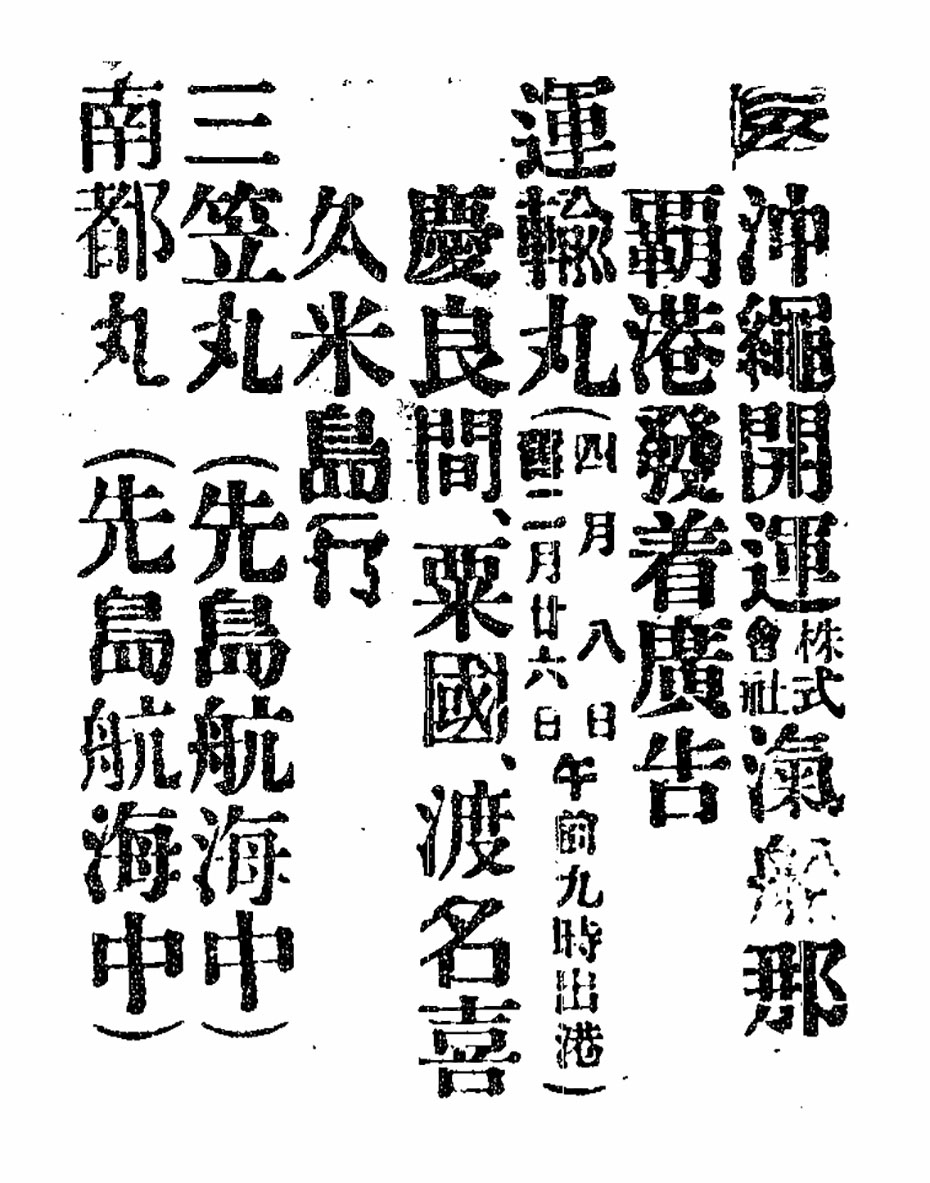 沖繩開運株式會社滊船那
覇港發着廣告
運輸丸(四月八日舊二月廿六日午前九時出港)
慶良間、粟國、渡名喜
久米島行
三笠丸(先島航海中)
南都丸(先島航海中)